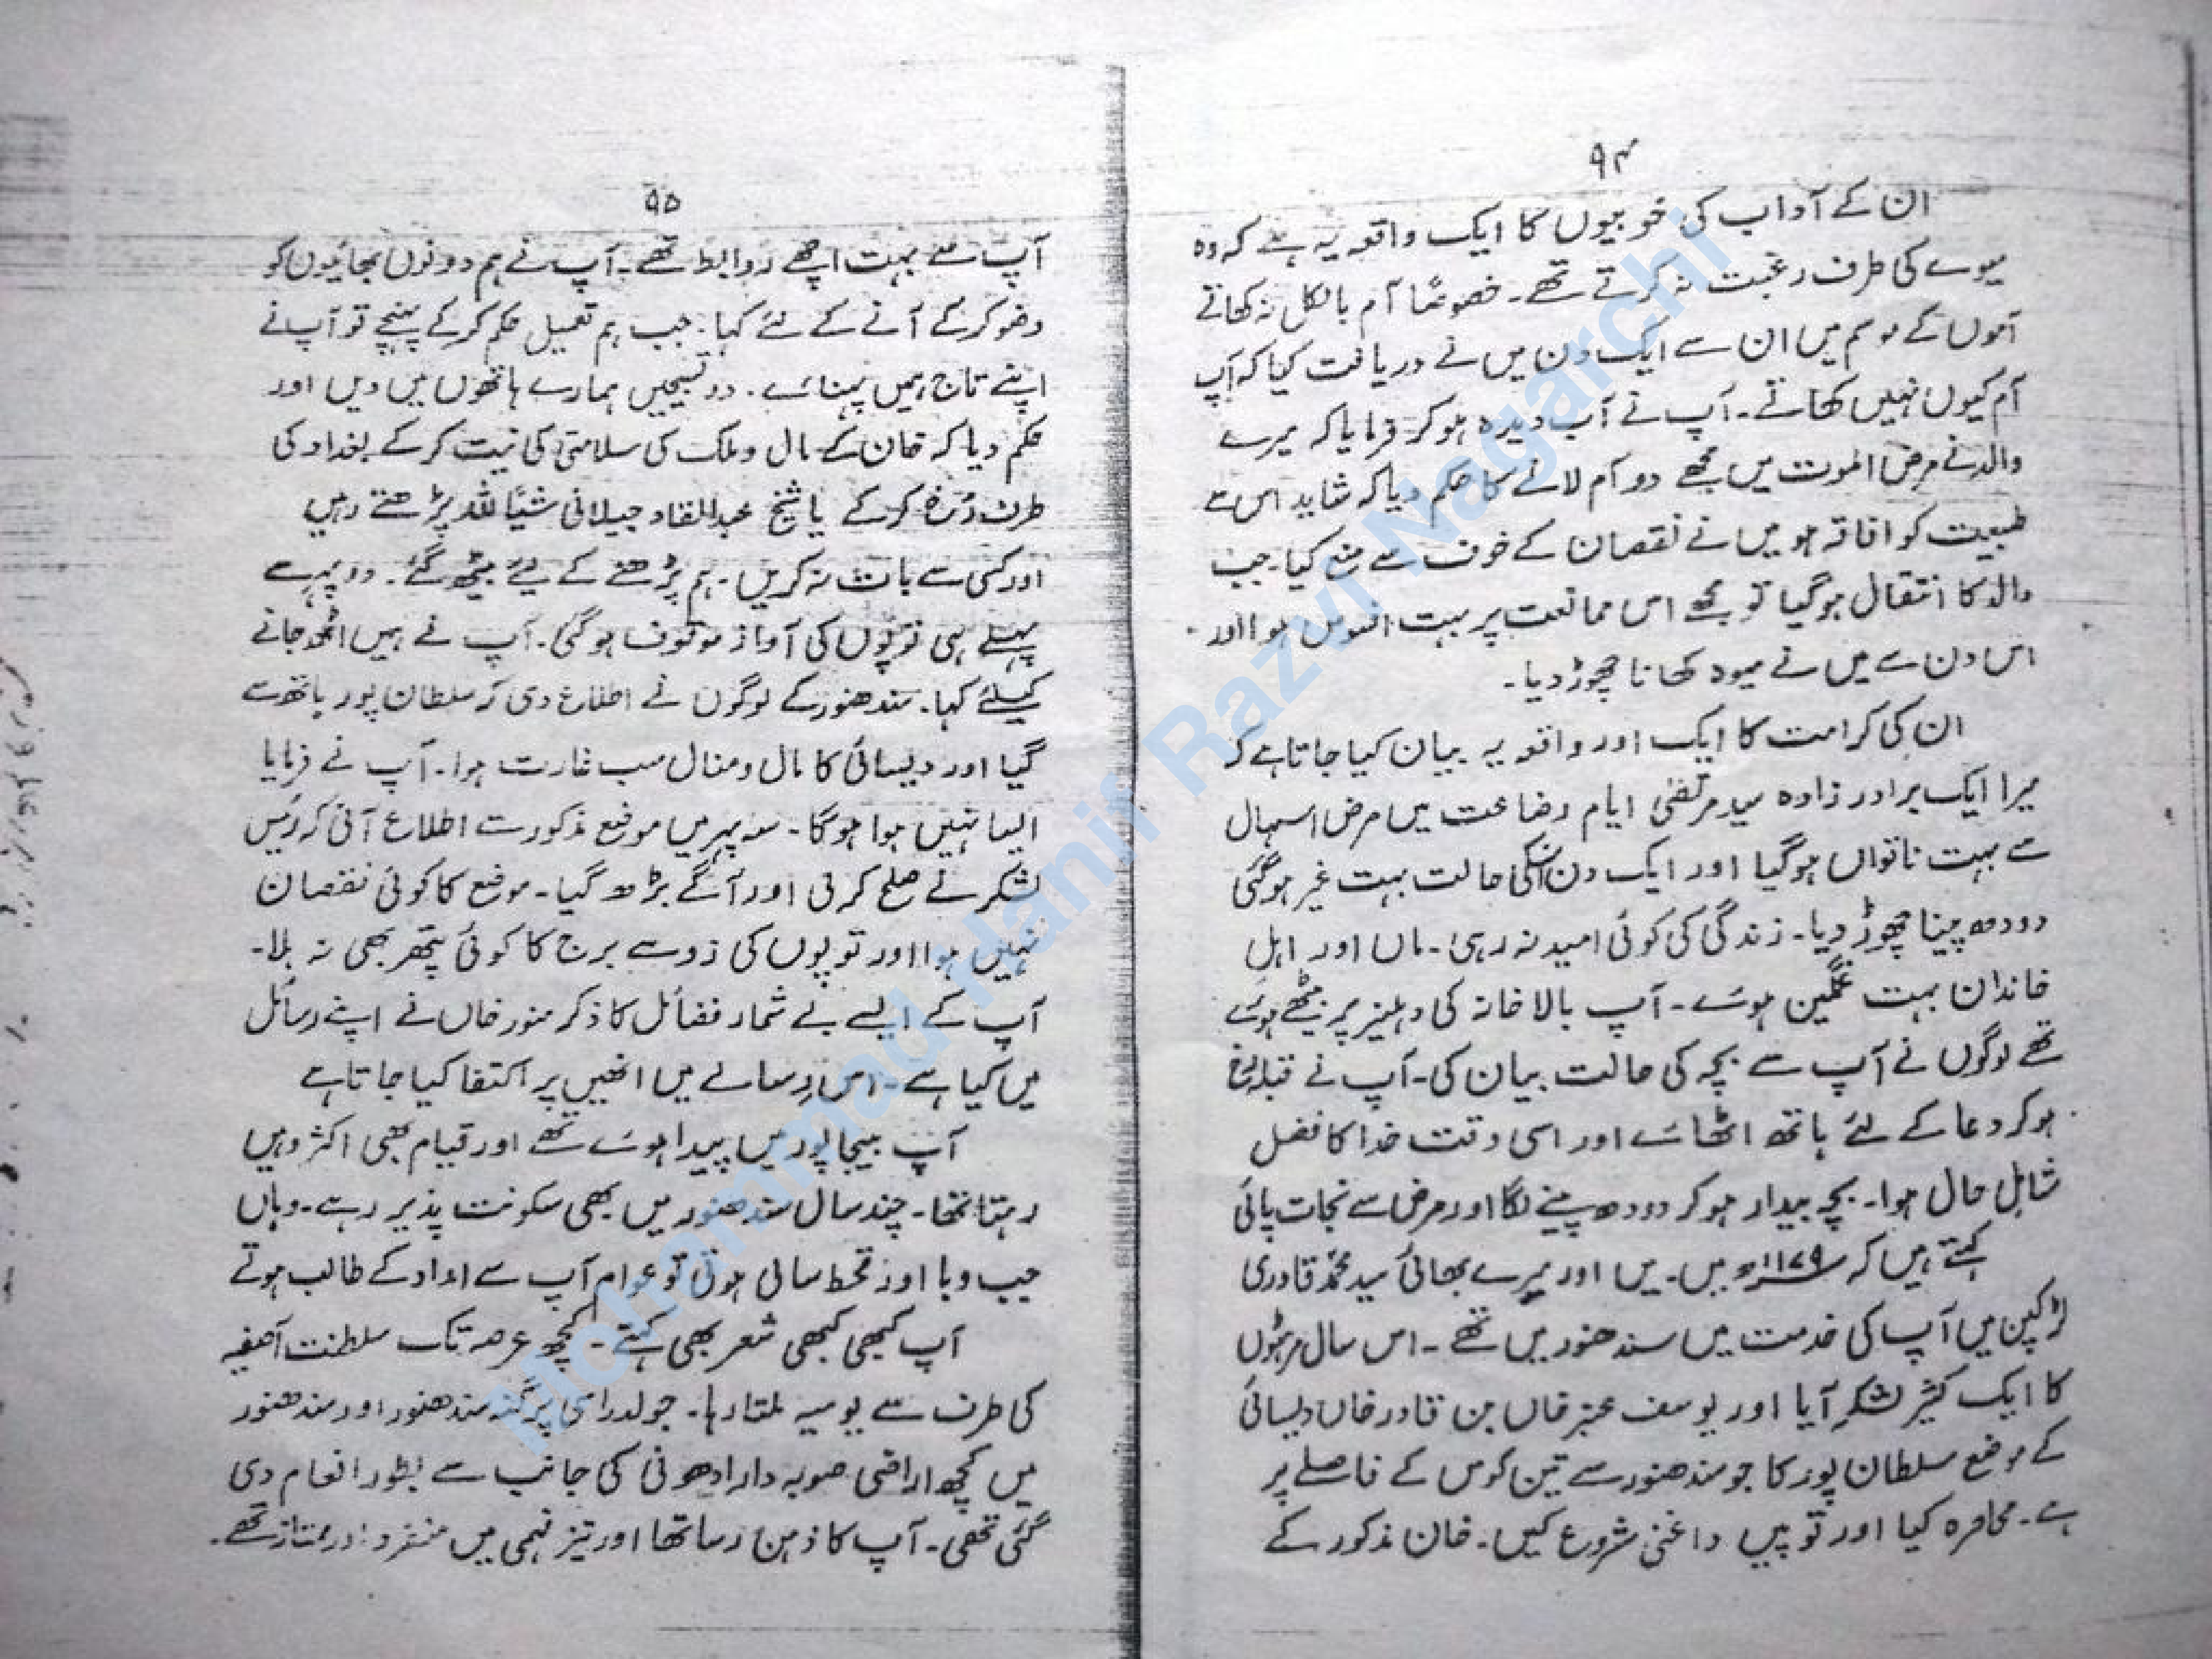 ۹۴
ان کے آداب کی خوبیوں کا ایک واقعہ یہ ہے کہ وہ
میوے کی طرف رغبت نہ کرتے تھے۔ خصوصًا آم بالکل نہ کھاتے
آموں کے موسم میں ان سے ایک دن میں نے دریافت کیا کہ آپ
آم کیوں نہیں کھاتے۔ آپ نے آب دیدہ ہوکر فرمایا کہ میرے
والد نے مرض الموت میں مجھے دو آم لانے کا حکم دیا کہ شاید اس سے
طبیعت کو افاقہ ہو میں نے نقصان کے خوف سے منع کیا۔ جب
والد کا انتقال ہوگیا تو مجھے اس ممانعت پر بہت افسوس ہوا اور
اس دن سے میں نے میوہ کھانا چھوڑ دیا۔
ان کی کرامت کا ایک اور واقعہ یہ بیان کیا جاتا ہے کہ
میرا ایک برادر زادہ سید مرتضیٰ ایام رضاعت میں مرض اسہال
سے بہت ناتواں ہوگیا اور ایک دن اسکی حالت بہت غیر ہوگئی
دودھ پینا چھوڑ دیا۔ زندگی کی کوئی امید نہ رہی۔ ماں اور اہل
خاندان بہت غمگین ہوئے۔ آپ بالا خانہ کی دہلیز پر بیٹھے ہوئے
تھے لوگوں نے آپ سے بچہ کی حالت بیان کی۔ آپ نے قبلہ رخ
ہوکر دعا کے لئے ہاتھ اٹھائے اور اسی وقت خدا کا فضل
شامل حال ہوا۔ بچہ بیدار ہوکر دودھ پینے لگا اور مرض سے نجات پائی
کہتے ہیں کہ ۱۱۷۹ھ میں۔ میں اور میرے بھائی سید محمد قادری
لڑکپن میں آپ کی خدمت میں سندھنور میں تھے۔ اس سال مرہٹوں
کا ایک کثیر لشکر آیا اور یوسف عنبر خاں بن قادر خاں دیسائی
کے موضع سلطان پور کا جو سندھنور سے تین کوس کے فاصلے پر
ہے۔ محاصرہ کیا اور توپیں داغنی شروع کیں۔ خان مذکور کے
۹۵
آپ سے بہت اچھے روابط تھے۔ آپ نے ہم دونوں بھائیوں کو
وضو کرکے آنے کے لئے کہا۔ جب ہم تعمیل حکم کرکے پہنچے تو آپ نے
اپنے تاج ہمیں پہنائے۔ دو تسبیحیں ہمارے ہاتھوں میں دیں اور
حکم دیا کہ خان کے مال و ملک کی سلامتی کی نیت کرکے بغداد کی
طرف رُخ کرکے یا شیخ عبدالقادر جیلانی شیئًا للہ پڑھتے رہیں
اور کسی سے بات نہ کریں۔ ہم پڑھنے کے لیے بیٹھ گئے۔ دوپہر سے
پہلے ہی توپوں کی آواز موقوف ہوگئی۔ آپ نے ہمیں اٹھ جانے
کیلئے کہا۔ سندھنور کے لوگوں نے اطلاع دی کہ سلطان پور ہاتھ سے
گیا اور دیسائی کا مال و منال سب غارت ہوا۔ آپ نے فرمایا
ایسا نہیں ہوا ہوگا۔ سہ پہر میں موضع مذکور سے اطلاع آئی کہ رئیس
لشکر نے صلح کرلی اور آگے بڑھ گیا۔ موضع کا کوئی نقصان
نہیں ہوا اور توپوں کی زد سے برج کا کوئی پتھر بھی نہ ہلا۔
آپ کے ایسے بے شمار فضائل کا ذکر منور خاں نے اپنے رسائل
میں کیا ہے۔ اس رسالے میں انھیں پر اکتفا کیا جاتا ہے
آپ بیجاپور میں پیدا ہوئے تھے اور قیام بھی اکثر وہیں
رہتا تھا۔ چند سال سندھنور میں بھی سکونت پذیر رہے۔ وہاں
جب وبا اور قحط سالی ہوتی تو عوام آپ سے امداد کے طالب ہوتے
آپ کبھی کبھی شعر بھی کہتے۔ کچھ عرصہ تک سلطنت آصفیہ
کی طرف سے یومیہ ملتا رہا۔ پرگنہ سندھنور اور سندھنور
میں کچھ اراضی صوبہ دار ادھونی کی جانب سے بطور انعام دی
گئی تھی۔ آپ کا ذہن رسا تھا اور تیز فہمی میں منفرد اور ممتاز تھے۔
Mohammad Hanif Razvi Nagarchi